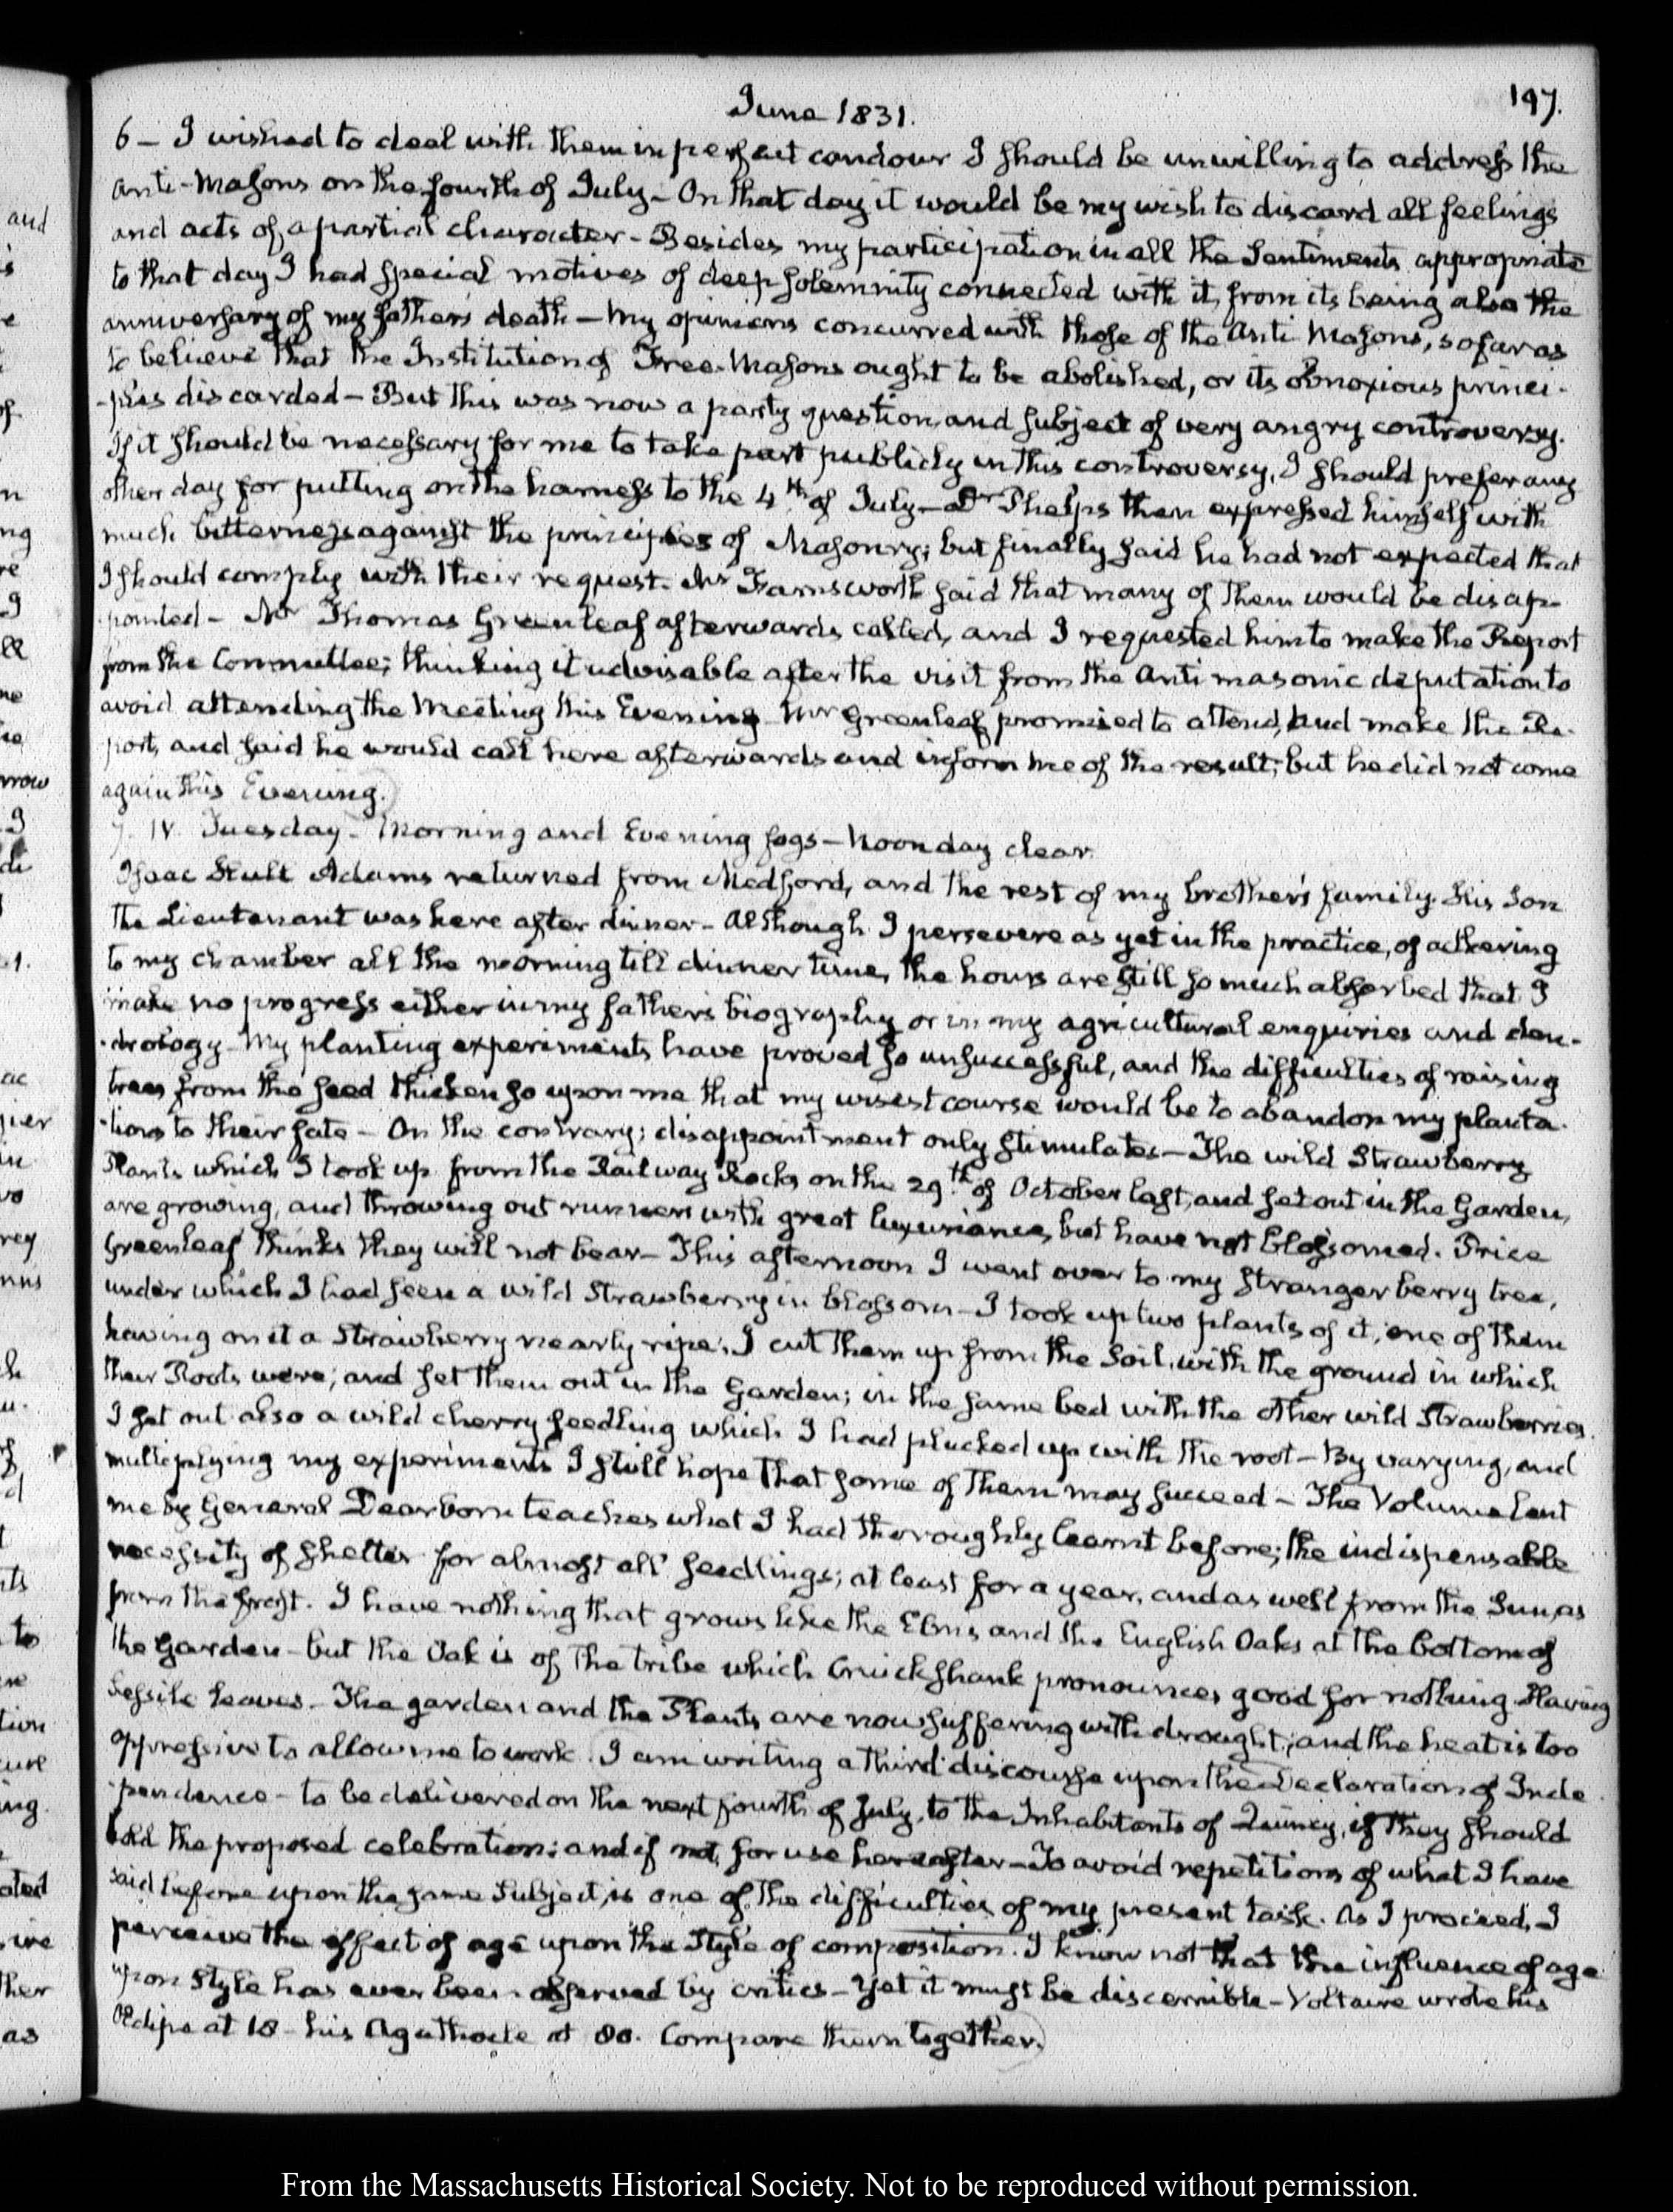 June 1831.
197.
6 – I wished to deal with them in perfect candour I should be unwilling to address the
Anti-Masons on the fourth of July – On that day it would be my wish to discard all feelings
and acts of a partial character – Besides my participation in all the Sentiments appropriate
to that day I had special motives of deep solemnity connected with it, from its being also the
anniversary of my father's death – My opinions concurred with those of the Anti Masons, so far as
to believe that the Institution of Free-Masons ought to be abolished, or its obnoxious princi-
-ples discarded – But this was now a party question, and subject of very angry controversy.
If it should be necessary for me to take part publicly in this controversy, I should prefer any
other day for putting on the harness to the 4.th of July – Dr Phelps then expressed himself with
much bitterness against the principles of Masonry; but finally said he had not expected that
I should comply with their request. Mr Farnsworth said that many of them would be disap-
pointed – Mr Thomas Greenleaf afterwards called, and I requested him to make the Report
from the Committee; thinking it advisable after the visit from the Anti masonic deputation to
avoid attending the Meeting this Evening – Mr Greenleaf promised to attend, and make the Re-
port, and said he would call here afterwards and inform me of the result; but he did not come
again this Evening.
7. IV. Tuesday – Morning and Evening fogs – Noon day clear.
Isaac Hull Adams returned from Medford, and the rest of my brother's family. His Son
the Lieutenant was here after dinner – Although I persevere as yet in the practice, of adhering
to my chamber all the morning till dinner time, the hours are still so much absorbed that I
make no progress either in my father's biography or in my agricultural enquiries and den-
-drology – My planting experiments have proved so unsuccessful, and the difficulties of raising
trees from the seed thicken so upon me that my wisest course would be to abandon my planta-
-tions to their fate – On the contrary; disappointment only stimulates – The wild Strawberry
Plants which I took up from the Railway Rocks on the 29.th of October last, and set out in the Garden,
are growing, and throwing out runners with great luxuriance, but have not blossomed. Price
Greenleaf thinks they will not bear – This afternoon I went over to my stranger berry tree,
under which I had seen a wild Strawberry in blossom – I took up two plants of it, one of them
having on it a Strawberry nearly ripe. I cut them up from the Soil, with the ground in which
their Roots were; and set them out in the Garden; in the same bed with the other wild Strawberries.
I set out also a wild cherry seedling which I had plucked up with the root – By varying, and
multiplying my experiments I still hope that some of them may succeed – The Volume lent
me by General Dearborn teaches what I had thoroughly learnt before; the indispensable
necessity of shelter for almost all seedlings; at least for a year, and as well from the Sun, as
from the frost. I have nothing that grows like the Elms and the English Oaks at the bottom of
the Garden – but the Oak is of the tribe which Cruickshank pronounces good for nothing. Having
Sessile leaves – The garden and the Plants are now suffering with drought, and the heat is too
oppressive to allow me to work. I am writing a third discourse upon the Declaration of Inde-
-pendence – to be delivered on the next fourth of July, to the Inhabitants of Quincy, if they should
hold the proposed celebration; and if not, for use hereafter – To avoid repetitions of what I have
said before upon the same Subject, is one of the difficulties of my present task. As I proceed, I
perceive the effect of age upon the Style of composition. I know not that the influence of age
upon Style has ever been observed by critics – Yet it must be discernible – Voltaire wrote his
Oedipe at 18 – his Agathocle at 80. Compare them together.
From the Massachusetts Historical Society. Not to be reproduced without permission.